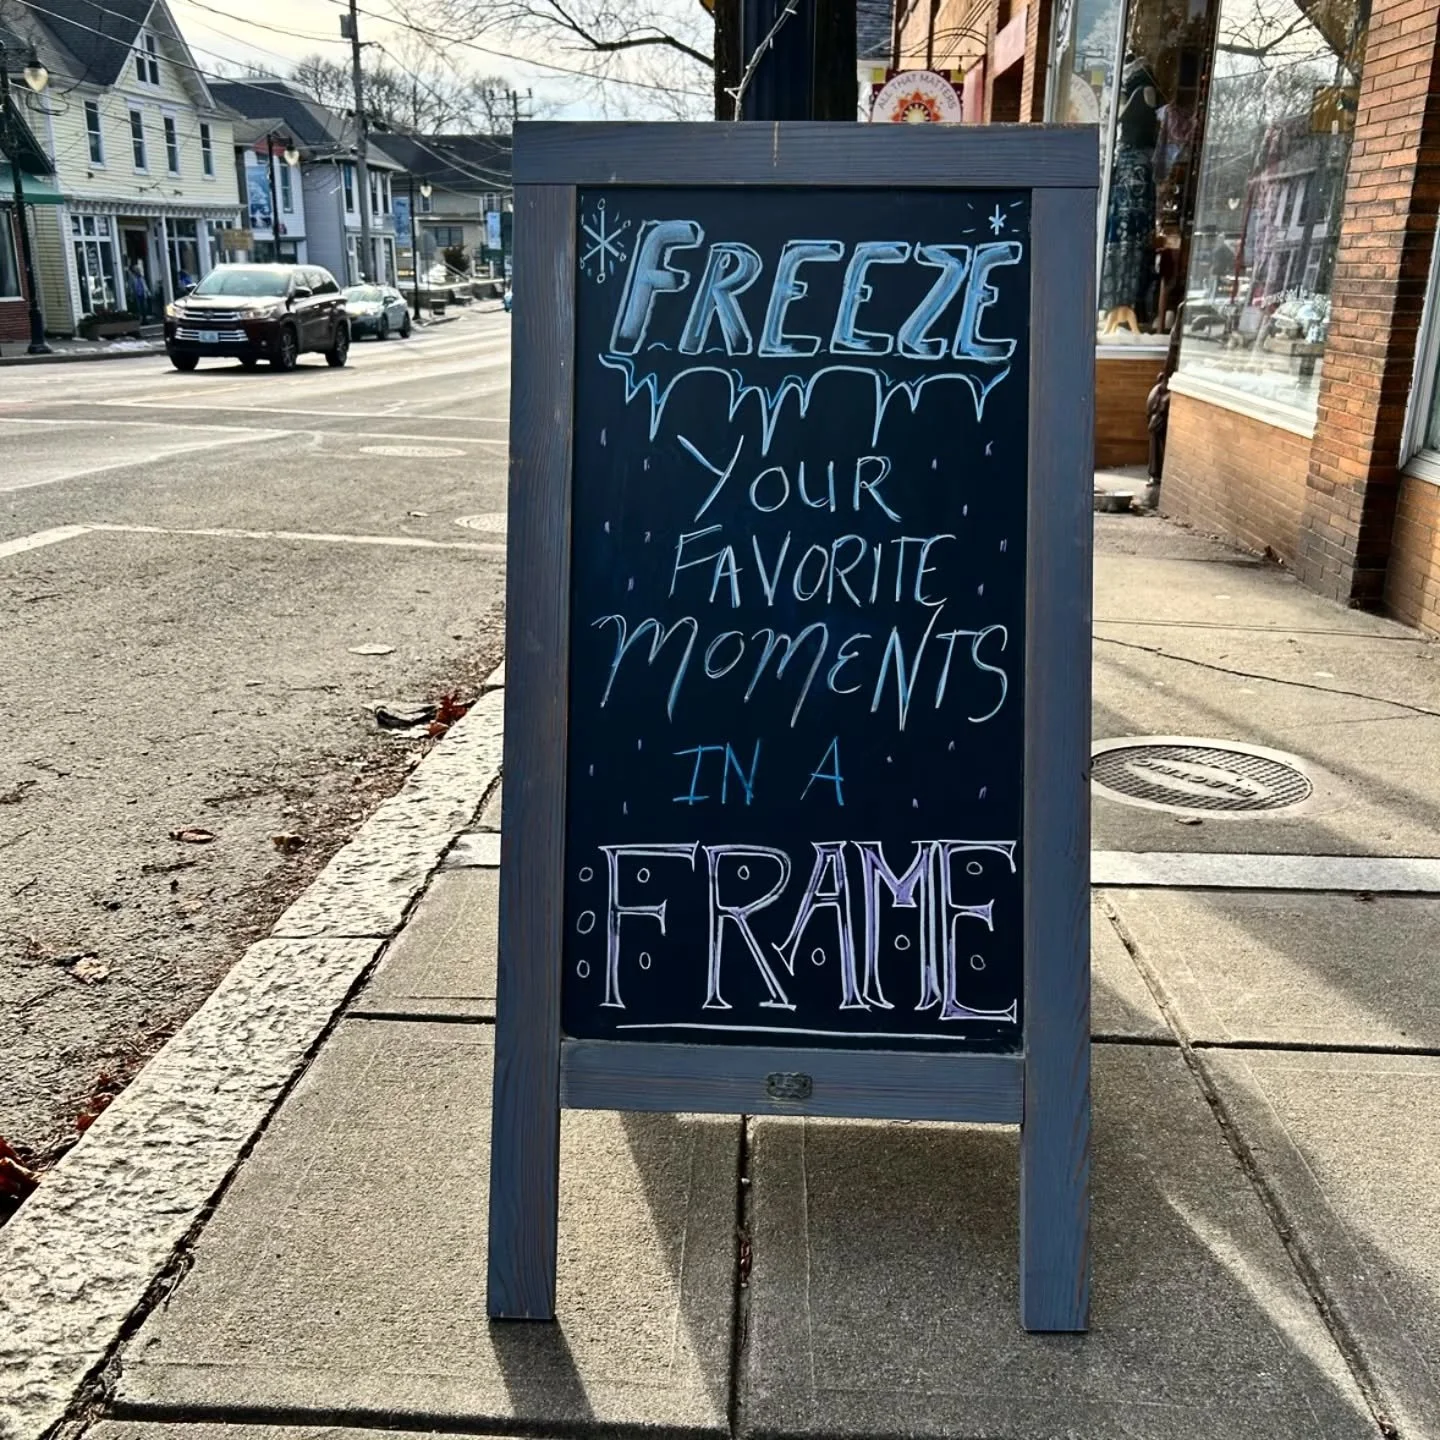 ALL THAT MATTERS
FREEZE
YOUR
FAVORITE
MOMENTS
IN A
FRAME